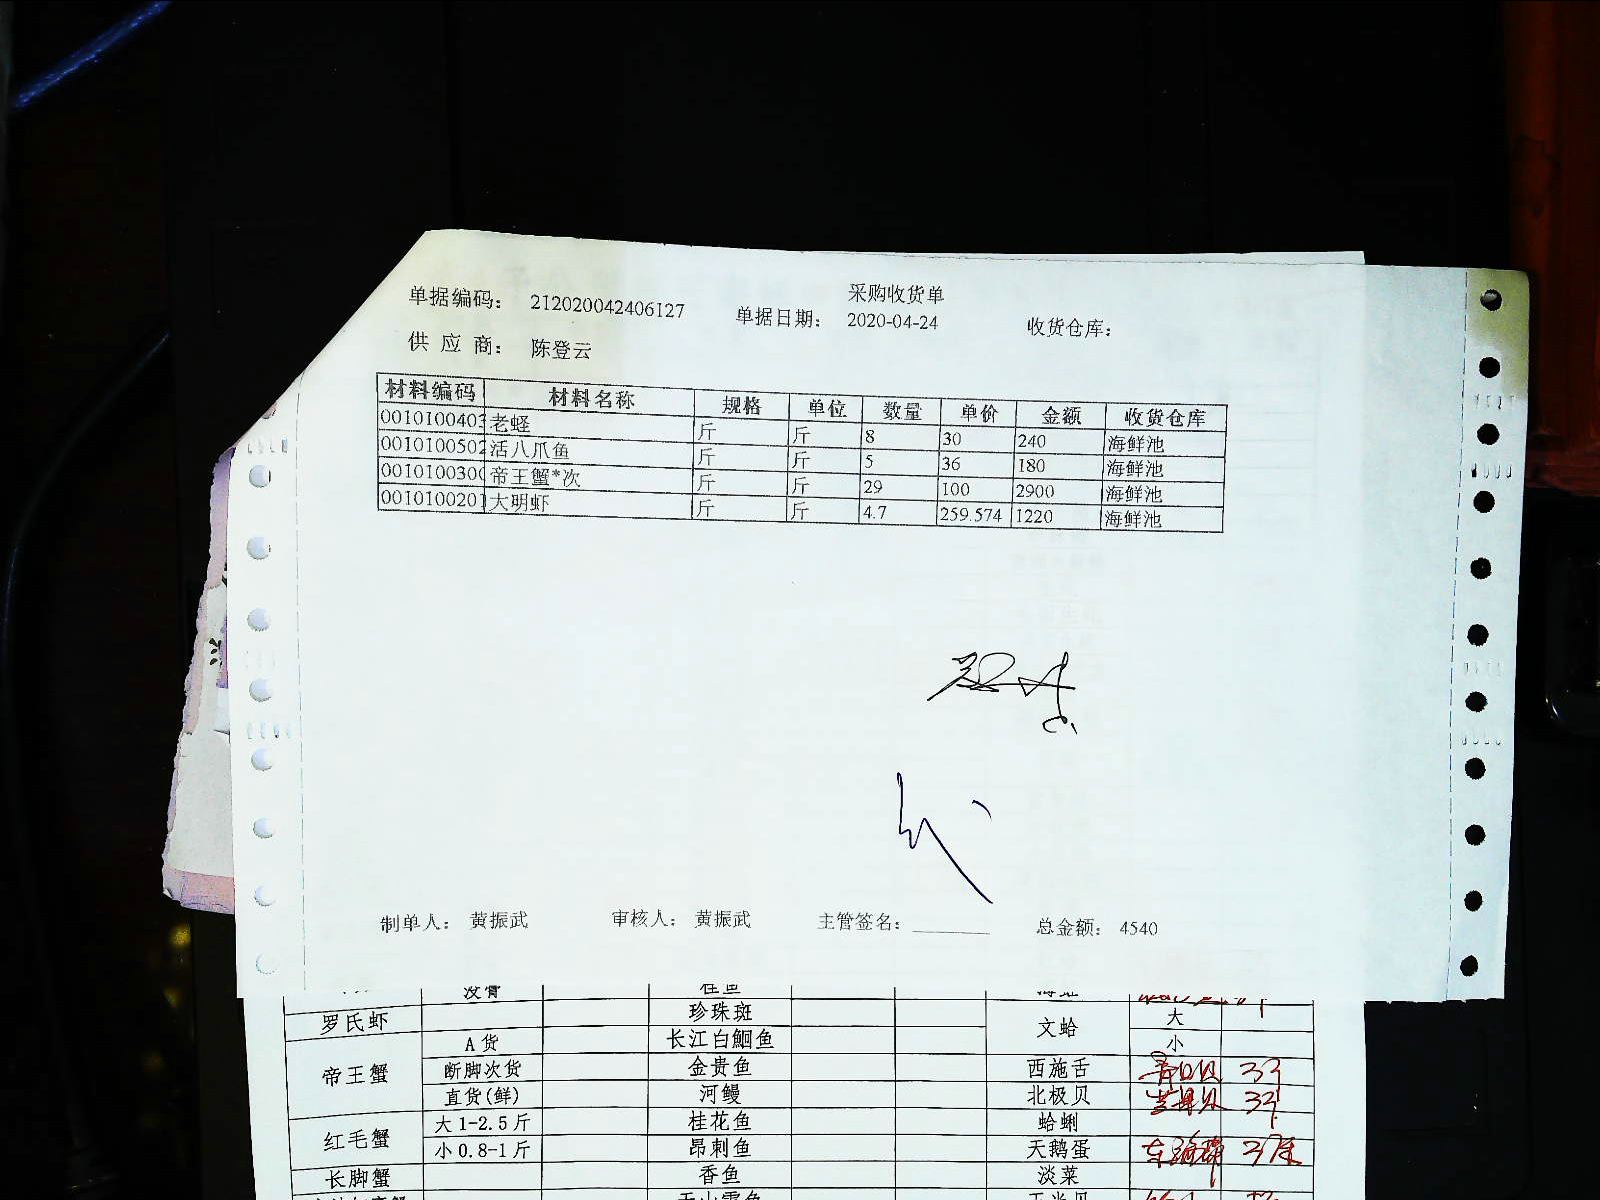 采购收货单
单据编码： 212020042406127 单据日期： 2020-04-24 收货仓库：
供 应 商： 陈登云
材料编码 材料名称 规格 单位 数量 单价 金额 收货仓库
0010100403 老蛏 斤 斤 8 30 240 海鲜池
0010100502 活八爪鱼 斤 斤 5 36 180 海鲜池
001010030 帝王蟹*次 斤 斤 29 100 2900 海鲜池
001010020 大明虾 斤 斤 4.7 259.574 1220 海鲜池
制单人： 黄振武 审核人： 黄振武 主管签名： 总金额： 4540
没骨 桂鱼
罗氏虾 珍珠斑 文蛤 大
A货 长江白鮰鱼 小
帝王蟹 断脚次货 金贵鱼 西施舌 33
直货(鲜) 河鳗 北极贝
红毛蟹 大1-2.5斤 桂花鱼 蛤蜊
小0.8-1斤 昂刺鱼 天鹅蛋
长脚蟹 香鱼 淡菜